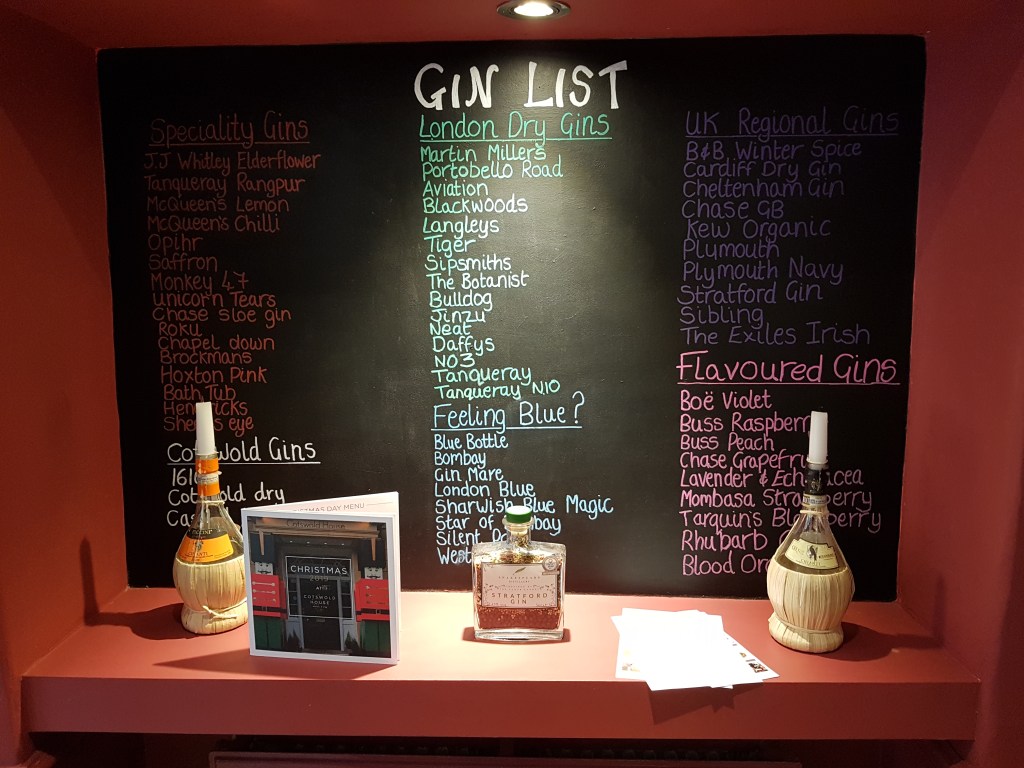 GIN LIST
Speciality Gins
J.J Whitley Elderflower
Tanqueray Rangpur
McQueen's Lemon
McQueen's Chilli
Opihr
Saffron
Monkey 47
Unicorn Tears
Chase sloe gin
Roku
Chapel down
Brockmans
Hoxton Pink
Bath Tub
Hendricks
eye
Cotswold Gins
Cotswold dry
London Dry Gins
Martin Millers
Portobello Road
Aviation
Blackwoods
Langleys
Tiger
Sipsmiths
The Botanist
Bulldog
Jinzu
Neat
Daffys
NO3
Tanqueray
Tanqueray N10
Feeling Blue?
Blue Bottle
Bombay
Gin Mare
London Blue
Sharwish Blue Magic
Star of
Silent
UK Regional Gins
B&B Winter Spice
Cardiff Dry Gin
Cheltenham Gin
Chase GB
Kew Organic
Plymouth
Plymouth Navy
Stratford Gin
Sibling
The Exiles Irish
Flavoured Gins
Boë Violet
Buss
Buss Peach
Chase
Lavender &
Mombasa
Tarquin's
Rhubarb
Blood
DAY MENU
Cotswold House
CHRISTMAS
2019
AT
COTSWOLD
HOUSE
STRATFORD
GIN